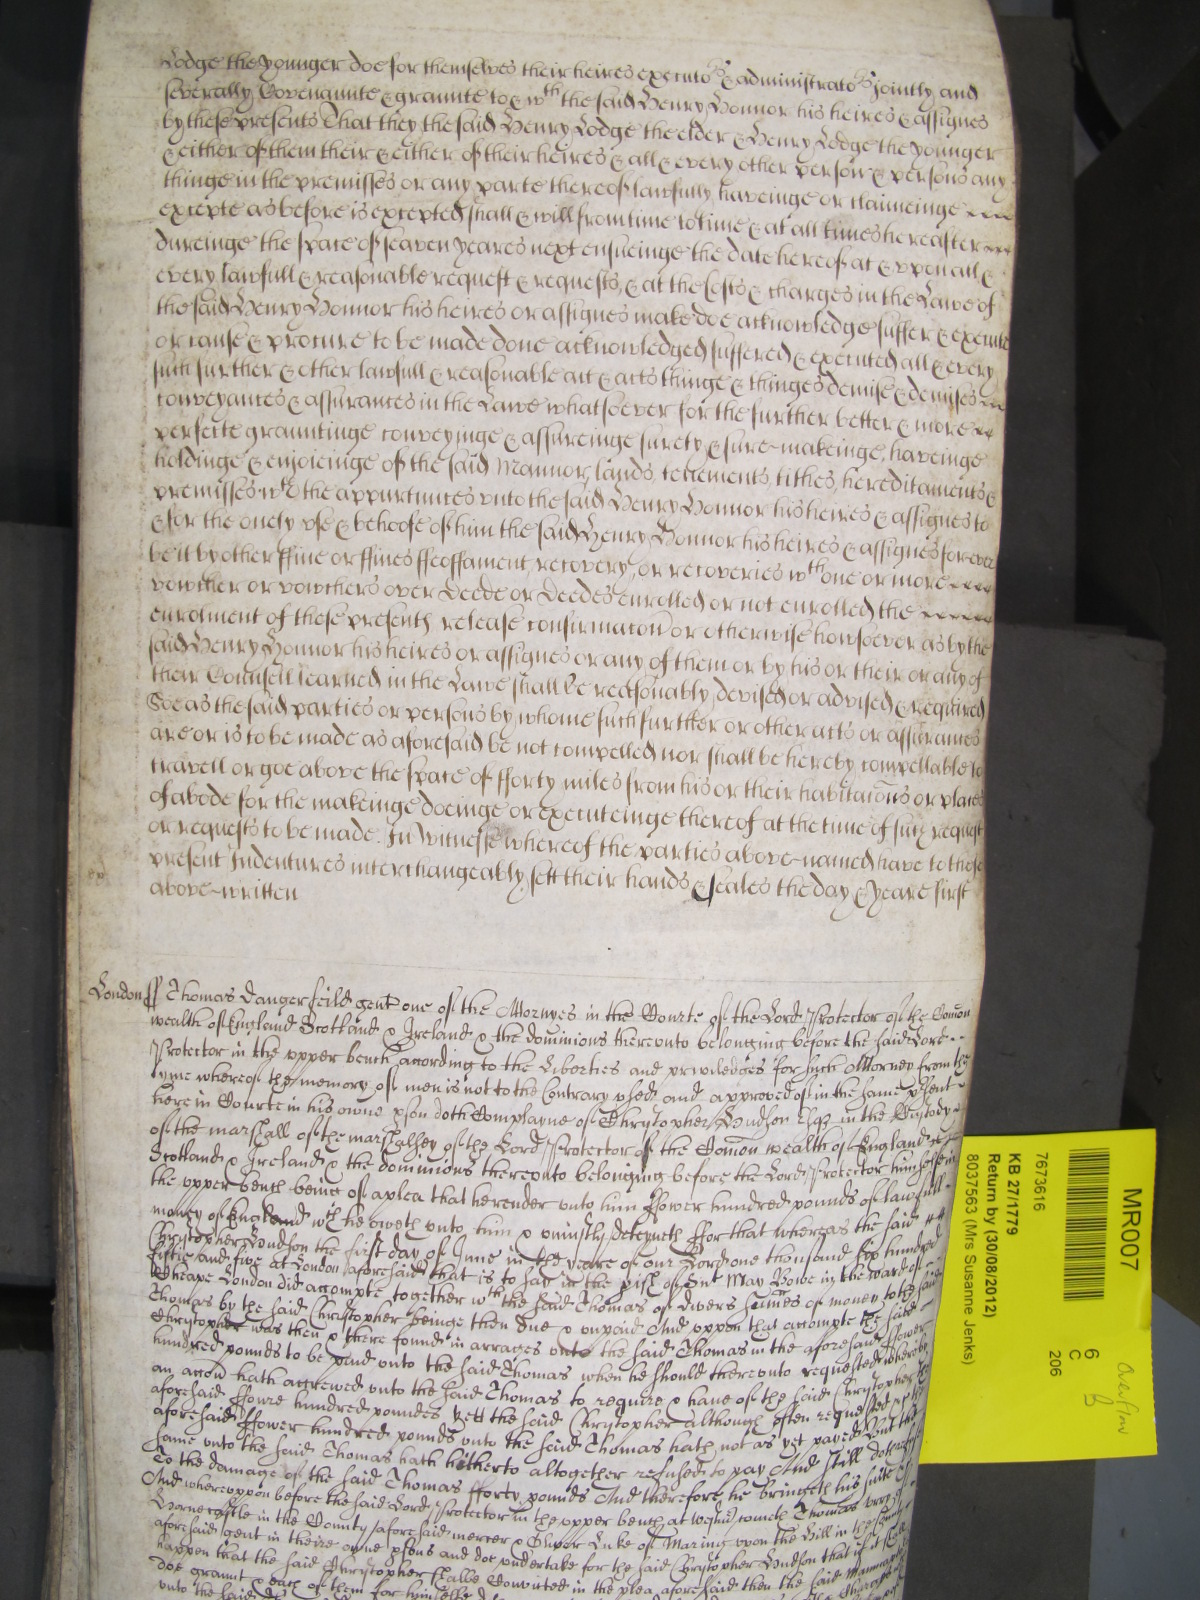 Lodge the younger doe for themselves their heires executors & administrators joyntly and
severally Covenaunte & graunte to & wth the said Henry Honnor his heires & assignes
by these presents That they the said Henry Lodge the elder & Henry Lodge the younger
& either of them their & either of their heires & all & every other person & persons any
thinge in the premisses or any parte thereof lawfully haveinge or claimeinge
excepte as before is excepted shall & will from time to time & at all times hereafter
dureinge the space of seaven yeares next ensueinge the date hereof at & vpon all &
every lawfull & reasonable request & requests, & at the Costs & charges in the Lawe of
the said Henry Honnor his heires or assignes make doe acknowledge suffer & execute
or cause & procure to be made done acknowledged suffered & executed all & every
such further & other lawfull & reasonable act & acts thinge & thinges demise & demises
conveyances & assurances in the Lawe whatsoever for the further better & more
perfecte grauntinge conveyinge & assureinge surety & sure-makeinge, haveinge
holdinge & enjoieinge of the said Mannor, lands, tenements, tithes, hereditaments &
premisses wth the appurtnnces vnto the said Henry Honnor his heires & assignes to
& for the onely vse & behoofe of him the said Henry Honnor his heires & assignes for ever
be it by other ffine or ffines ffeoffament, recovery, or recoveries wth one or more
vowcher or vowchers over Deede or Deedes enrolled or not enrolled the
enrolment of these presents release confirmacon or otherwise howsoever as by the
said Henry Honnor his heires or assignes or any of them or by his or their or any of
their Counsell learned in the Lawe shall be reasonably devised or advised & required
Soe as the said parties or persons by whome such further or other acts or assurances
are or is to be made as aforesaid be not compelled nor shall be hereby compellable to
travell or goe above the space of fforty miles from his or their habitacons or places
of abode for the makeinge doeinge or executeinge thereof at the time of such request
or requests to be made. In Witnesse whereof the parties above-named have to these
present Indentures interchangeably sett their hands & seales the day & yeare first
above-written
London ss Thomas Dangerfeild gent one of the Attornyes in the Courte of the Lord Protector of the Comon
wealth of England Scotland & Ireland & the dominions therevnto belonging before the said Lord
Protector in the vpper bench according to the Liberties and priviledges for such Attorney from the
tyme whereof the memory of men is not to the Contrary vsed and approved of in the same psent
here in Courte in his owne pson doth Complayne of Chrystopher Hudson Esq in the Custody
of the marshall of the marshalsey of the Lord Protector of the Comon wealth of England
Scotland & Ireland & the dominions therevnto belonging before the Lord Protector himselfe in
the vpper bench being of a plea that herender vnto him ffower hundred pounds of lawfull
money of England wch he oweth vnto him & vniustly deteyneth ffor that whereas the said
Christopher Hudson the first day of June in the yeare of our Lord one thousand six hundred
fiftie and five at London aforesaid that is to say in the pish of Snt Mary Bowe in the ward of
Cheape London did accompte together wth the said Thomas of divers summes of money to the said
Thomas by the said Christopher beinge then due & vnpaid And vppon that accompte the said
Christopher was then & there found in arrages vnto the said Thomas in the aforesaid ffower
hundred pounds to be paid vnto the said Thomas when he should therevnto requested whereby
an accon hath accrewed vnto the said Thomas to require & have of the said Christopher the
aforesaid ffoure hundred poundes yett the said Christopher although often requested
aforesaid ffower hundred pounds vnto the said Thomas hath not as yet payed But the
same vnto the said Thomas hath hitherto altogether refused to pay And still doth refuse
To the damage of the said Thomas fforty pounds And therefore he bringeth his suite
And wherevppon before the said Lord Protector in the vpper bench at Westm cometh Thomas
Hornecastle in the County aforesaid mercer & Oliver Luke of Maring vpon the Hill in the County
aforesaid gent in theire owne psons and doe vndertake for the said Christopher Hudson that if it shall
happen that the said Christopher shalbe Convicted in the plea aforesaid then the said
doe graunt & each of them for himselfe
vnto the said
MR007
76736116
KB 27/1779
Return by (30/08/2012)
8037563 (Mrs Susanne Jenks)
6
C
206
Overflow
B